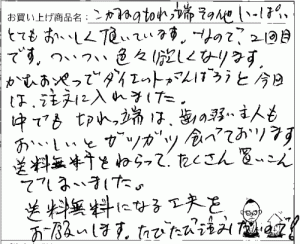 お買い上げ商品名：こがねの切れっ端 その他いっぱい
とてもおいしく頂いています。なので、2回目
です。ついつい色々欲しくなります。
かむおやつでダイエットがんばろうと今回
は、注文に入れました。
中でも切れっ端は、歯の弱い主人も
おいしいとガツガツ食べております。
送料無料をねらって、たくさん買いこん
でしまいました。
送料無料になる工夫を
お願いします。たびたび注文したいので!